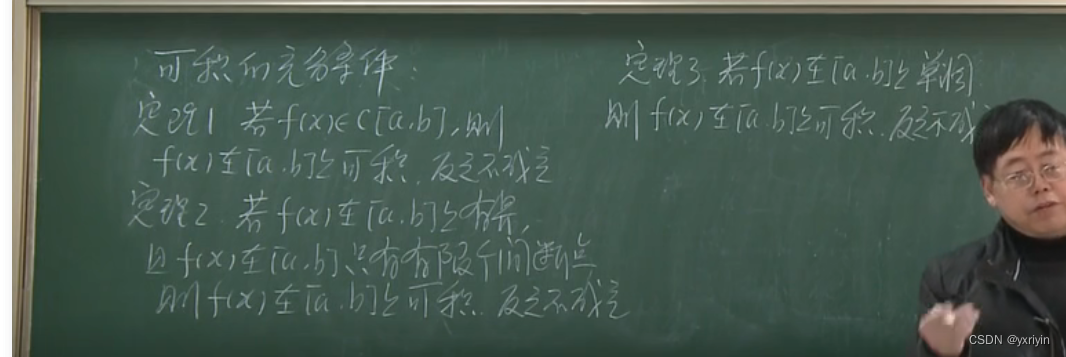 可积的充分条件:
定理1 若f(x)∈C[a,b],则
f(x)在[a,b]上可积. 反之不成立
定理2 若f(x)在[a,b]上有界,
且f(x)在[a,b]只有有限个间断点
则f(x)在[a,b]上可积. 反之不成立
定理3 若f(x)在[a,b]上单调
则f(x)在[a,b]上可积. 反之不成
CSDN @yxriyin